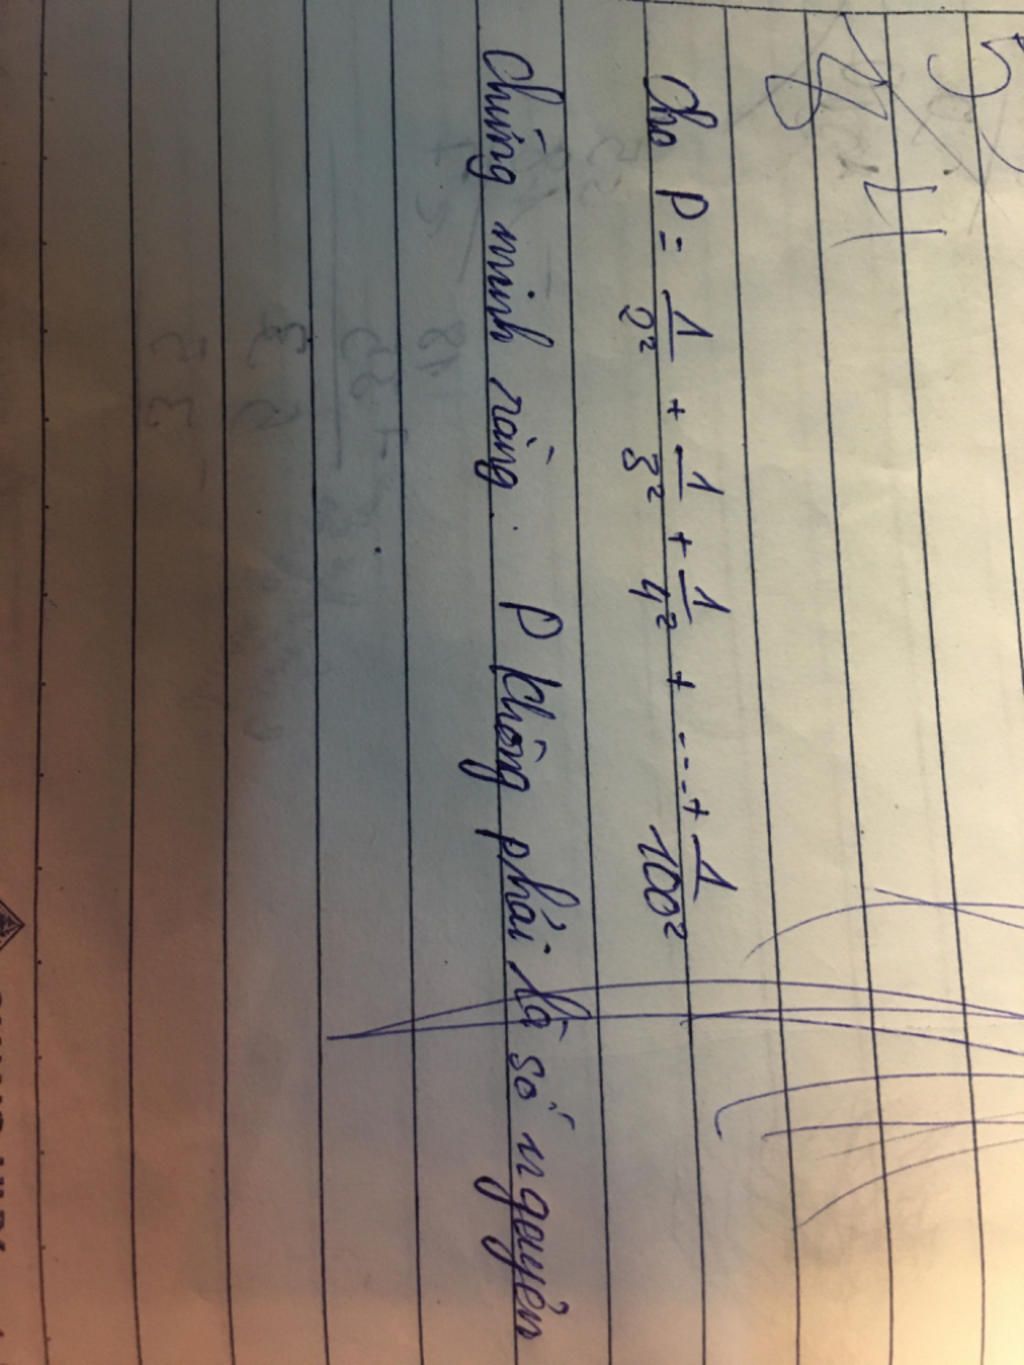 Cho P = 1/2² + 1/3² + 1/4² + ... + 1/100²
Chứng minh rằng: P không phải là số nguyên